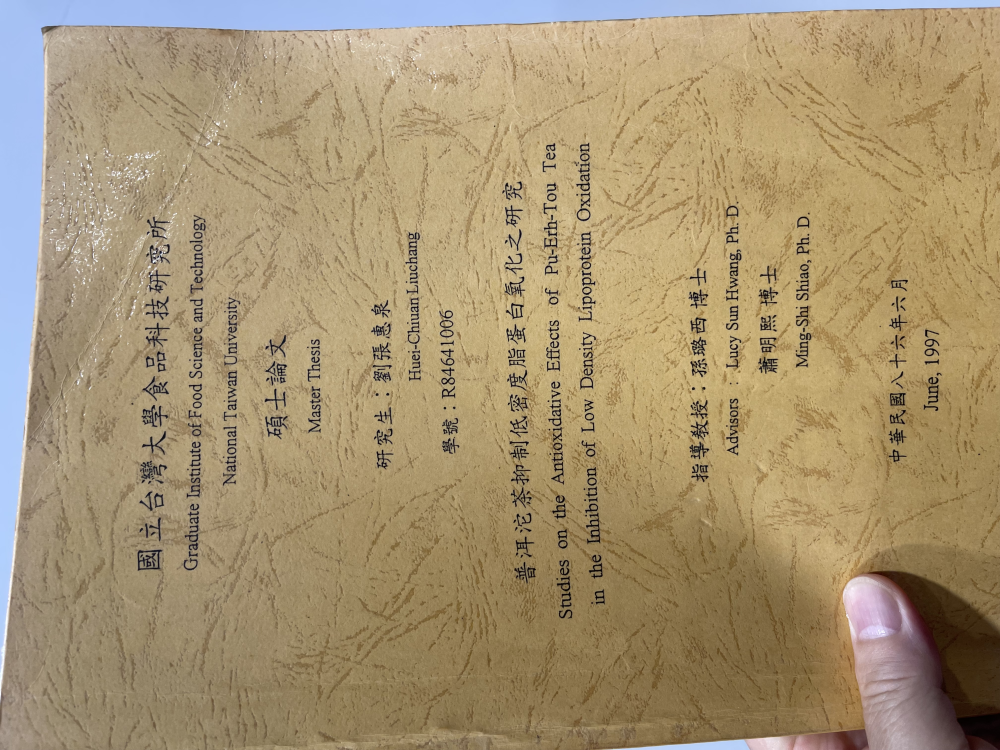 國立台灣大學食品科技研究所
Graduate Institute of Food Science and Technology
National Taiwan University
碩士論文
Master Thesis
研究生：劉張惠泉
Huei-Chuan Liuchang
學號：R84641006
普洱沱茶抑制低密度脂蛋白氧化之研究
Studies on the Antioxidative Effects of Pu-Erh-Tou Tea
in the Inhibition of Low Density Lipoprotein Oxidation
指導教授：孫璐西 博士
Advisors : Lucy Sun Hwang, Ph. D.
蕭明熙 博士
Ming-Shi Shiao, Ph. D.
中華民國八十六年六月
June, 1997